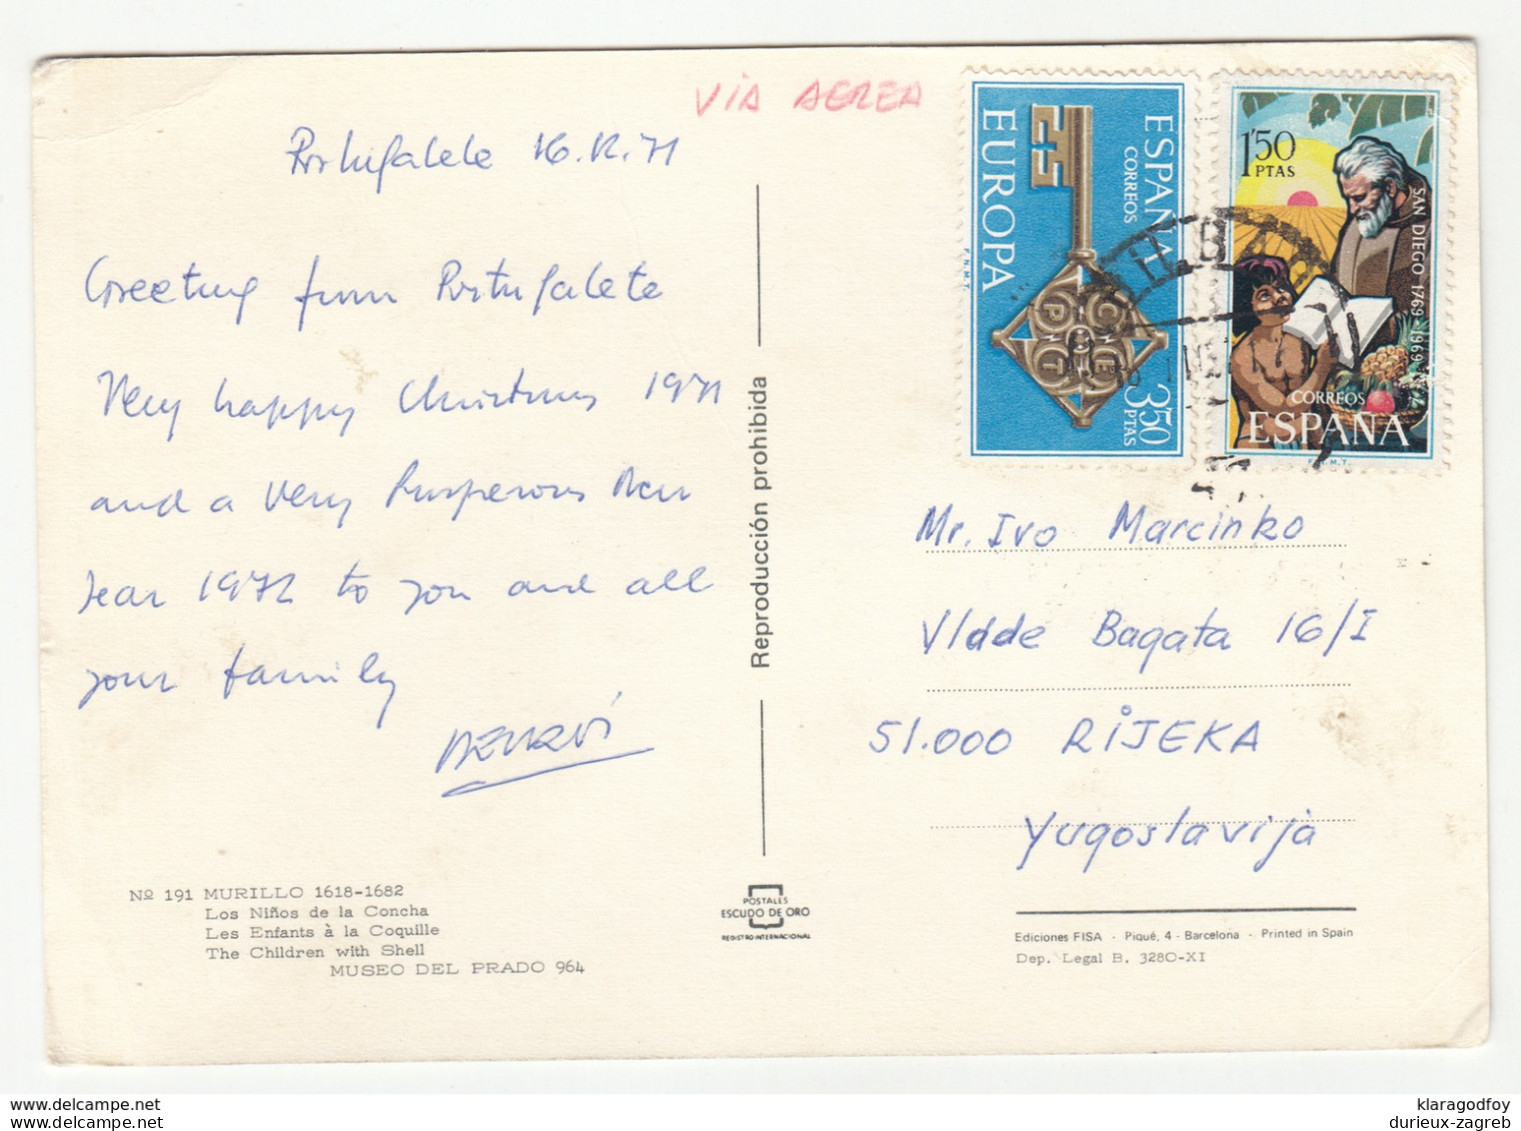 VIA AEREA
Portugalete 16.12.71
Greeting from Portugalete
Very happy Christmas 1971
and a very Prosperous New
Year 1972 to you and all
your family
Reproducción prohibida
EUROPA
ESPAÑA
CORREOS
3'50
PTAS
F.N.M.T.
CEPT
1'50
PTAS
SAN DIEGO 1769-1969
CORREOS
ESPAÑA
F.N.M.T.
Mr. Ivo Marcinko
Vlade Bagata 16/I
51.000 RIJEKA
Yugoslavija
Nº 191 MURILLO 1618-1682
Los Niños de la Concha
Les Enfants à la Coquille
The Children with Shell
MUSEO DEL PRADO 964
POSTALES
ESCUDO DE ORO
REGISTRO INTERNACIONAL
Ediciones FISA - Piqué, 4 - Barcelona - Printed in Spain
Dep. Legal B. 3280-XI
klaragodfoy
durieux-zagreb
www.delcampe.net